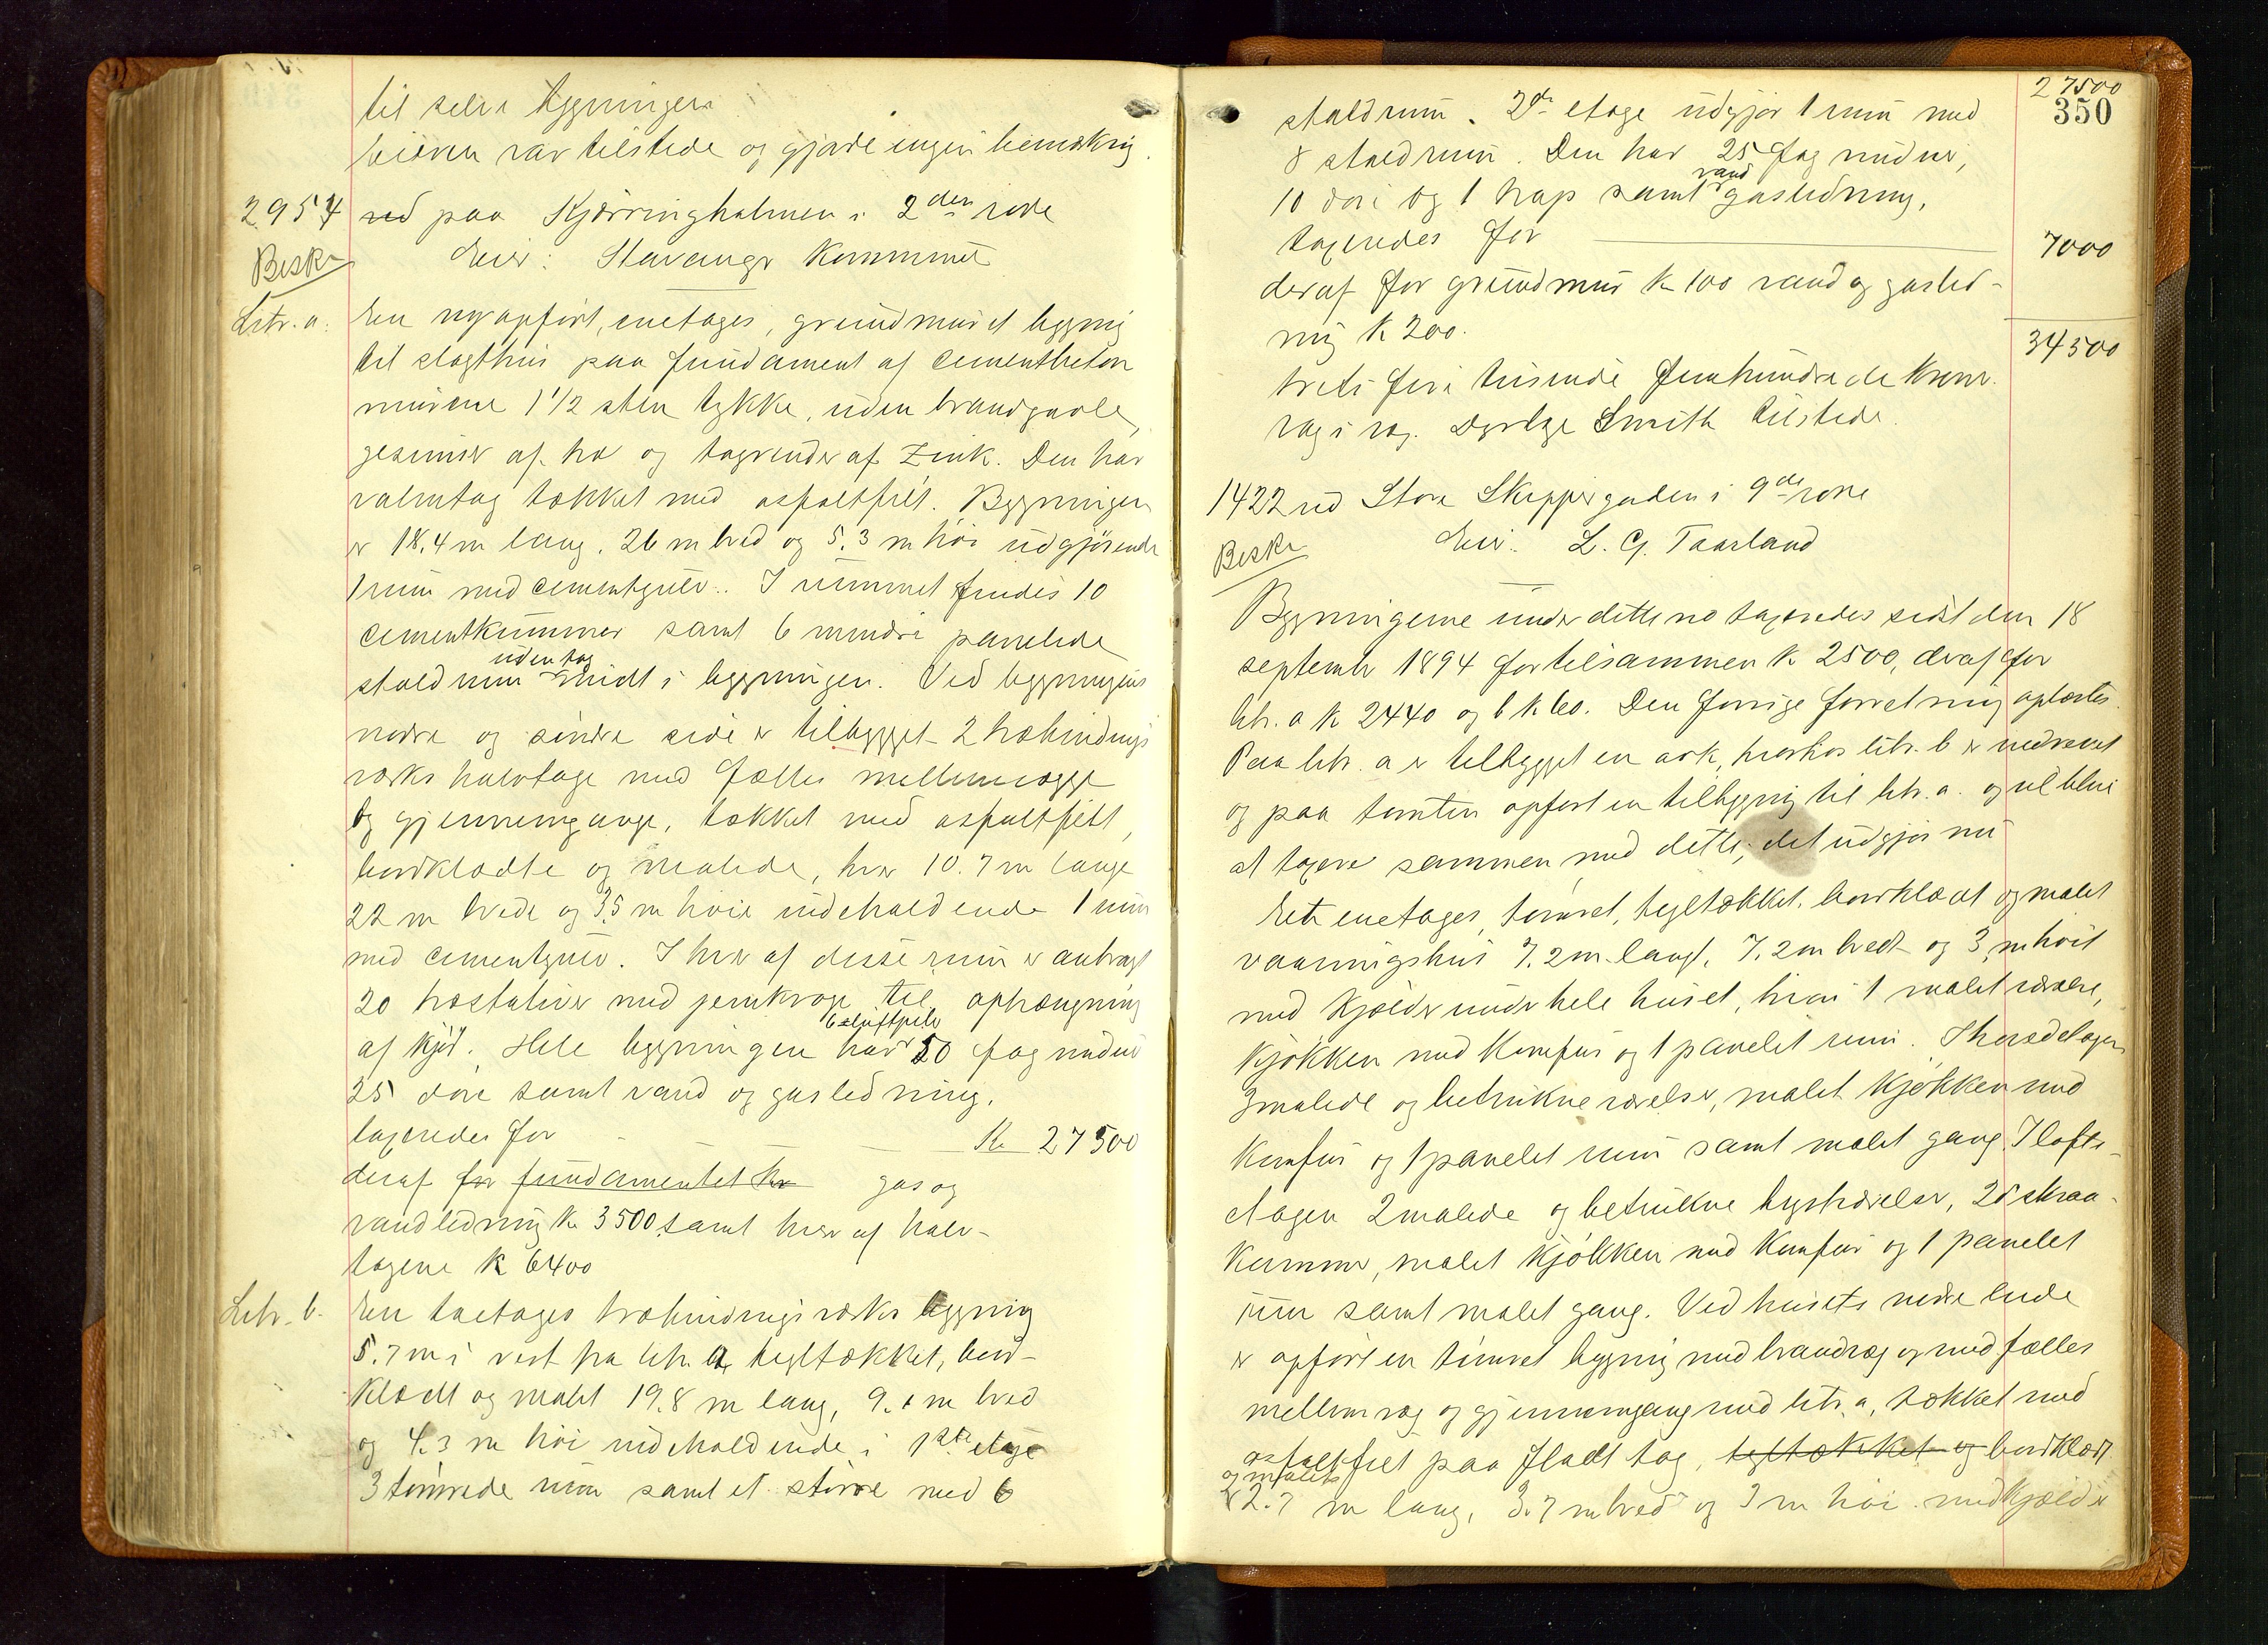 til selve bygningen.
Eieren var tilstede og gjorde ingen bemærkng.
2954 ved paa Kjærringholmen i 2den rode
Beskr Eier: Stavanger Kommune
Litr. a. En nyopført, enetages, grundmuret bygnig
til slagthus paa fundament af cementbeton
murene 1 1/2 sten tykke, uden brandgavle,
gesimser af træ og tagrender af Zink. Den har
valmtag tækket med asfaltfilt. Bygningen
er 18.4 m lang, 26 m bred og 5.3 m høi udgjørende
1 rum med cementgulv. I rummet findes 10
cementkummer samt 6 mindre panelede
uden tag
staldrum midt i bygningen. Ved bygningens
nordre og søndre side er tilbygget 2 træbindings
værks halvtage med fælles mellemvægge
og gjennemgange, tækket med asfaltfilt,
bordklædte og malede, hver 10.7 m lange
22 m brede og 3.5 m høie indeholdende 1 rum
med cementgulv. I hver af disse rum er anbragt
20 træstativer med jernkroge til ophængning
6 luftpiber
af kjød. Hele bygningen har 50 fag vinduer
25 døre samt vand og gasledning,
taxeredes for K 27500
deraf for fundamentet kr gas og
vandledning K 3500 samt hver af halv-
tagene K 6400
Litr. b. En toetages træbindingsværks bygning
5.7 m i vest fra litr. a, tegltækket, bord-
klædt og malet 19.8 m lang, 9. m bred
og 4.3 m høi indeholdende i 1ste etage
3 tømrede rum samt et større med 6
27500
350
staldrum. 2de etage udgjør 1 rum med
8 staldrum. Den har 25 fag vinduer,
vand
10 døre og 1 trap samt gasledning,
taxeredes for 7000
deraf for grundmur K 100 vand og gasled-
ning K 200.
34500
treti fire tusinde femhundrede Kroner.
Dyrlæge Smith tilstede.
1422 ved Store Skippergaden i 9de rode
Beskr Eier: L. G. Taarland
Bygningerne under dette no taxeredes sidst den 18
septembr 1894 for tilsammen K 2500, deraf for
litr. a K 2440 og b K 60. Den forrige forretning oplæstes.
Paa litr. a er tilbygget en ark, hvorhos litr. b er nedrevet
og paa tomten opført en tilbygnig til litr. a. og vil blive
at taxere sammen med dette; det udgjør nu
Et enetages, tømret, tegltækket, bordklædt og malet
vaaningshus 7.2 m langt, 7.2 m bredt og 3, m høit
med kjælder under hele huset, hvori 1 malet værelse,
kjøkken med Komfur og 1 panelet rum. I hovedetagen
3 malede og betrukne værelser, malet kjøkken med
komfur og 1 panelet rum samt malet gang. I lofts-
etagen 2 malede og betrukne kvistværelser, 2 skraa-
kammer, malet kjøkken med Komfur og 1 panelet
rum samt malet gang. Ved husets nedre ende
er opført en tømret bygnig med brandvæg og med fælles
mellemvæg og gjennemgang med litr. a, tækket med
asfaltfilt paa fladt tag, tegltækket og bordklædt
og malet
2.7 m lang, 3.7 m bred og 3 m høi med kjælder